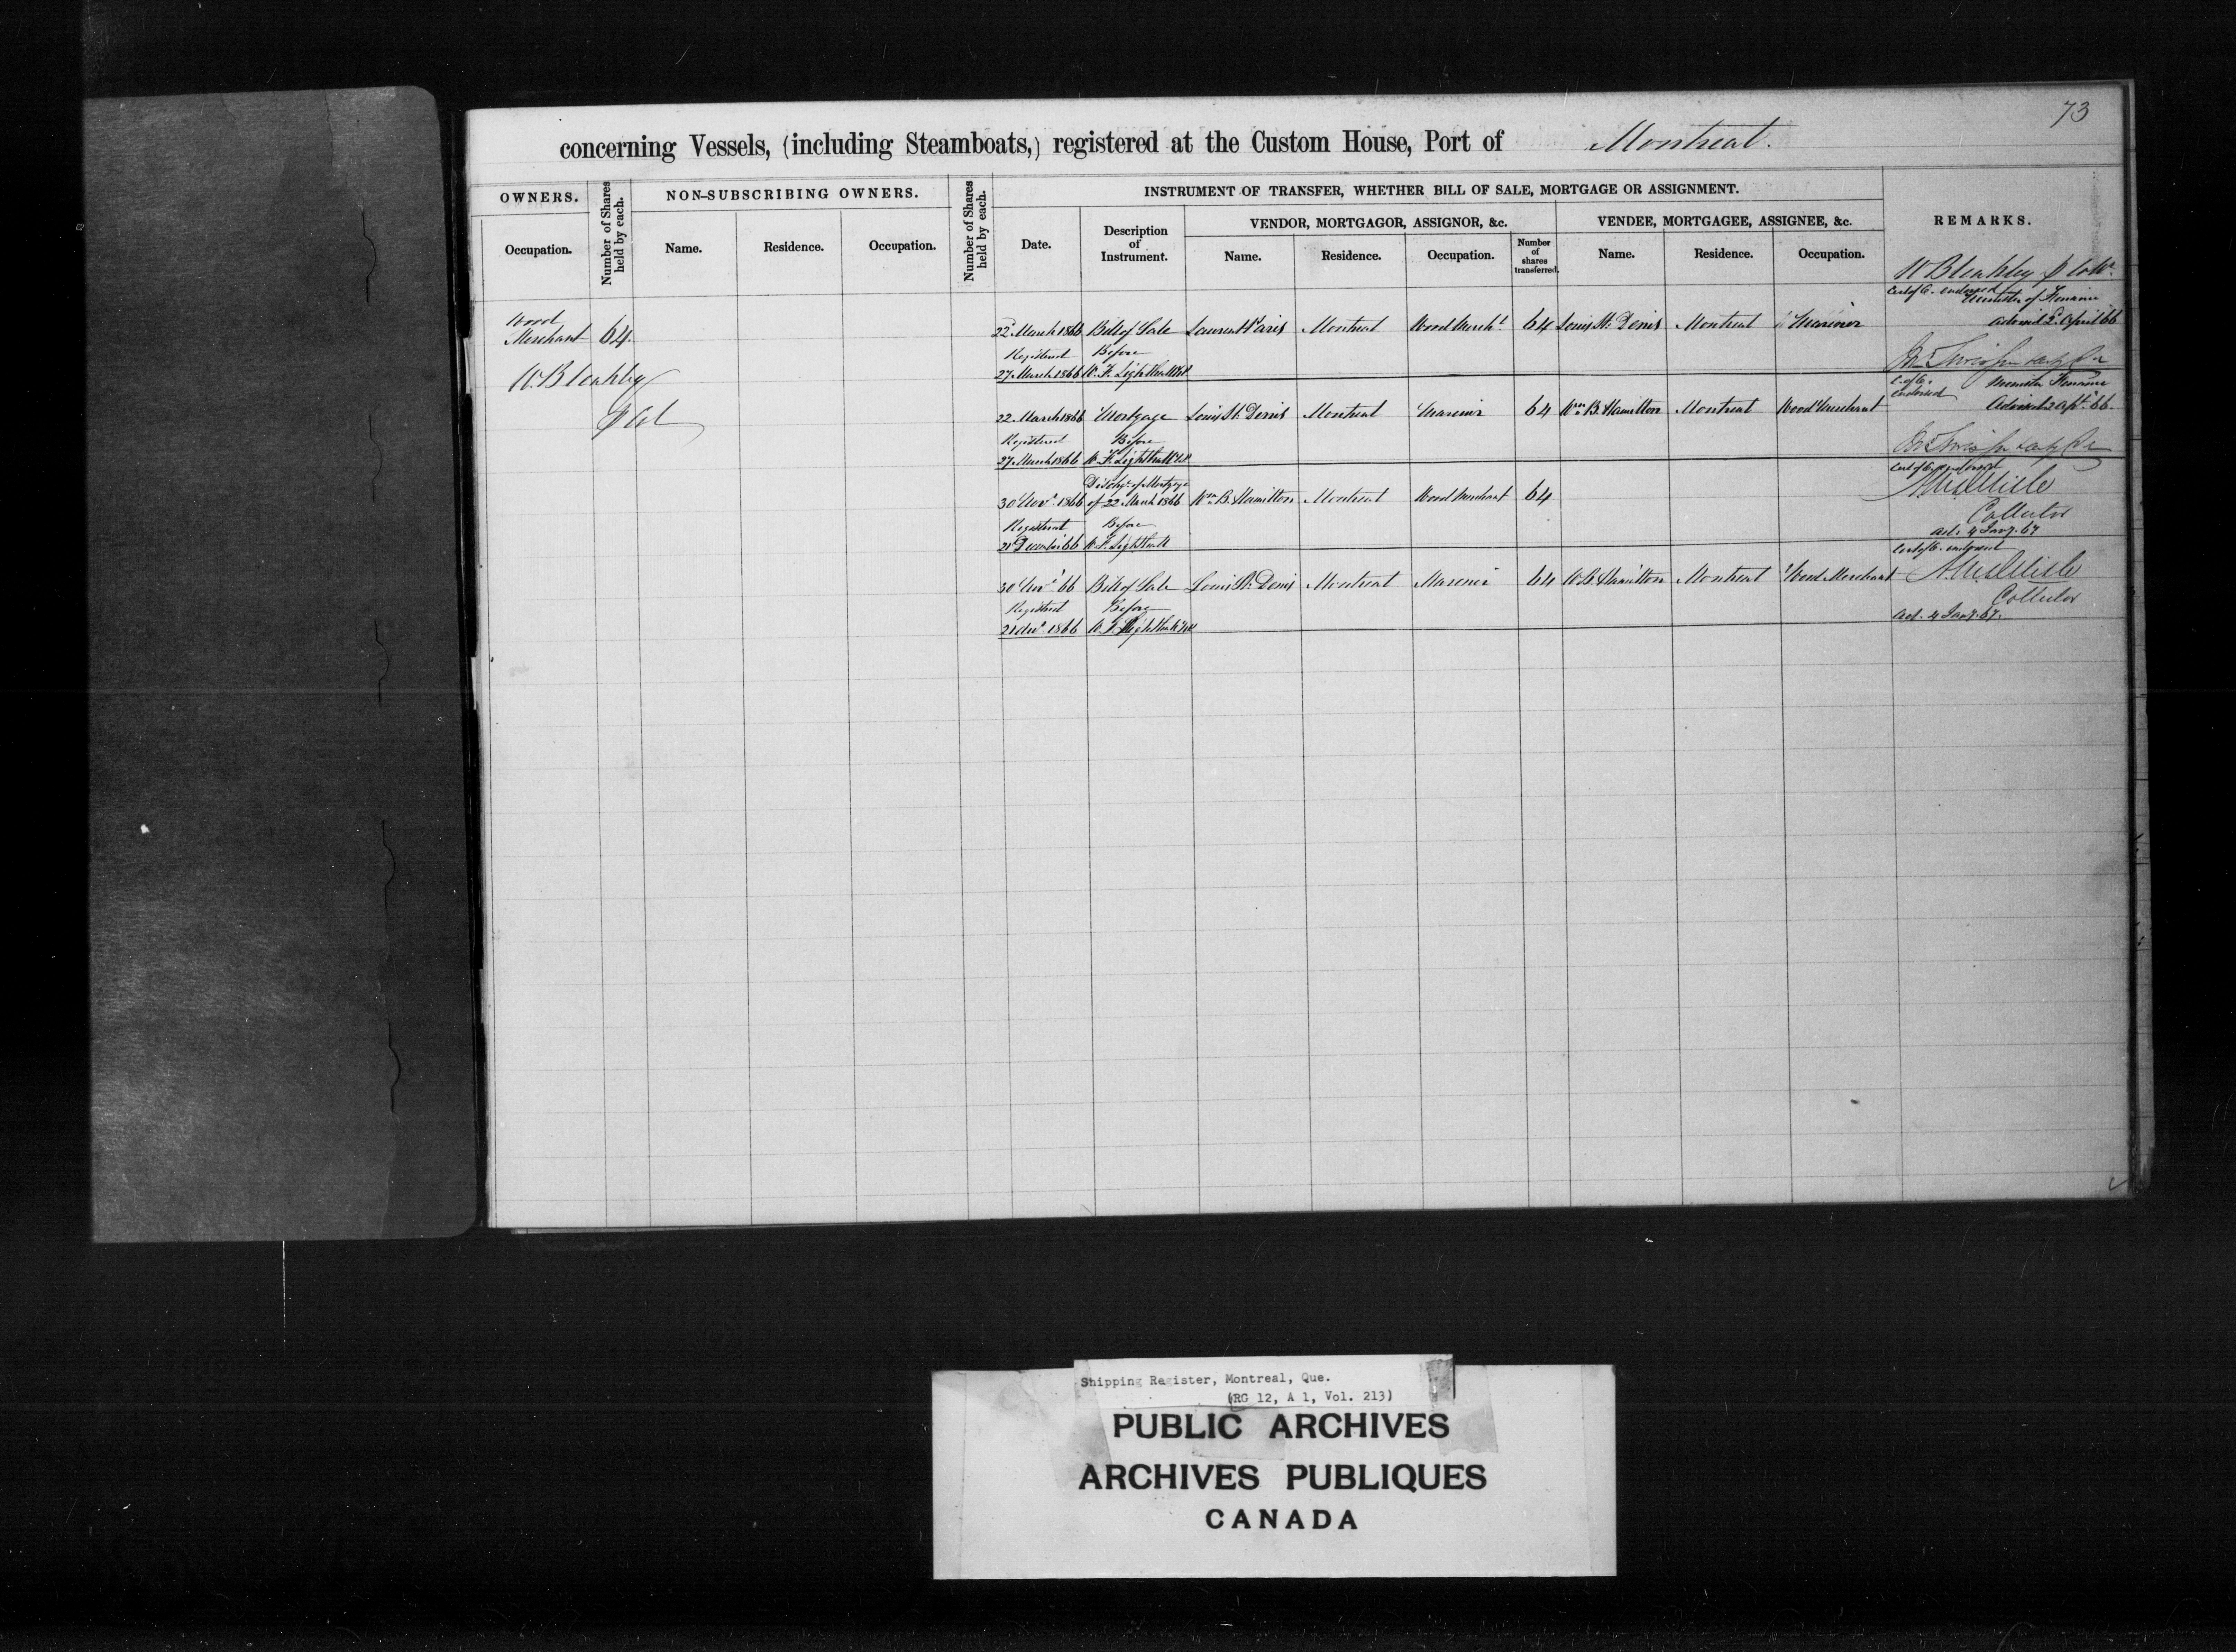 73
concerning Vessels, (including Steamboats,) registered at the Custom House, Port of Montreal.
OWNERS.
Number of Shares held by each.
NON-SUBSCRIBING OWNERS.
Number of Shares held by each.
INSTRUMENT OF TRANSFER, WHETHER BILL OF SALE, MORTGAGE OR ASSIGNMENT.
REMARKS.
VENDOR, MORTGAGOR, ASSIGNOR, &c.
VENDEE, MORTGAGEE, ASSIGNEE, &c.
Occupation.
Name. Residence. Occupation.
Date.
Description of Instrument.
Name. Residence. Occupation.
Number of shares transferred.
Name. Residence. Occupation.
W Bleakley
Cert of C. endorsed
Minister of Finance
Wood
Merchant 64.
22 March 1866 Bill of Sale Laurent Paris Montreal Wood Mercht 64 Louis St. Denis Montreal Mariner
advised 2 April 66
Registered Before
27 March 1866 W. F. Lighthall N.P.
W. Bleakley
C. of C. endorsed
Minister Finance
22 March 1866 Mortgage Louis St. Denis Montreal Mariner 64 Wm B. Hamilton Montreal Wood Merchant
Advised 2 Apl. 66
Registered Before
27 March 1866 W. F. Lighthall N.P.
Cert of C. endorsed
Disch. of Mortgage
30 Novr 1866 of 22 March 1866 Wm B. Hamilton Montreal Wood Merchant 64
Collector
Registered Before
21 December 66 W. F. Lighthall
ad. 4 Jany. 67
Cert of C. endorsed
30 Novr 66 Bill of Sale Louis St. Denis Montreal Mariner 64 W. B. Hamilton Montreal Wood Merchant
Collector
Registered Before
21 Decr 1866 W. F. Lighthall
ad. 4 Jany. 67.
Shipping Register, Montreal, Que.
(RG 12, A 1, Vol. 213)
PUBLIC ARCHIVES
ARCHIVES PUBLIQUES
CANADA